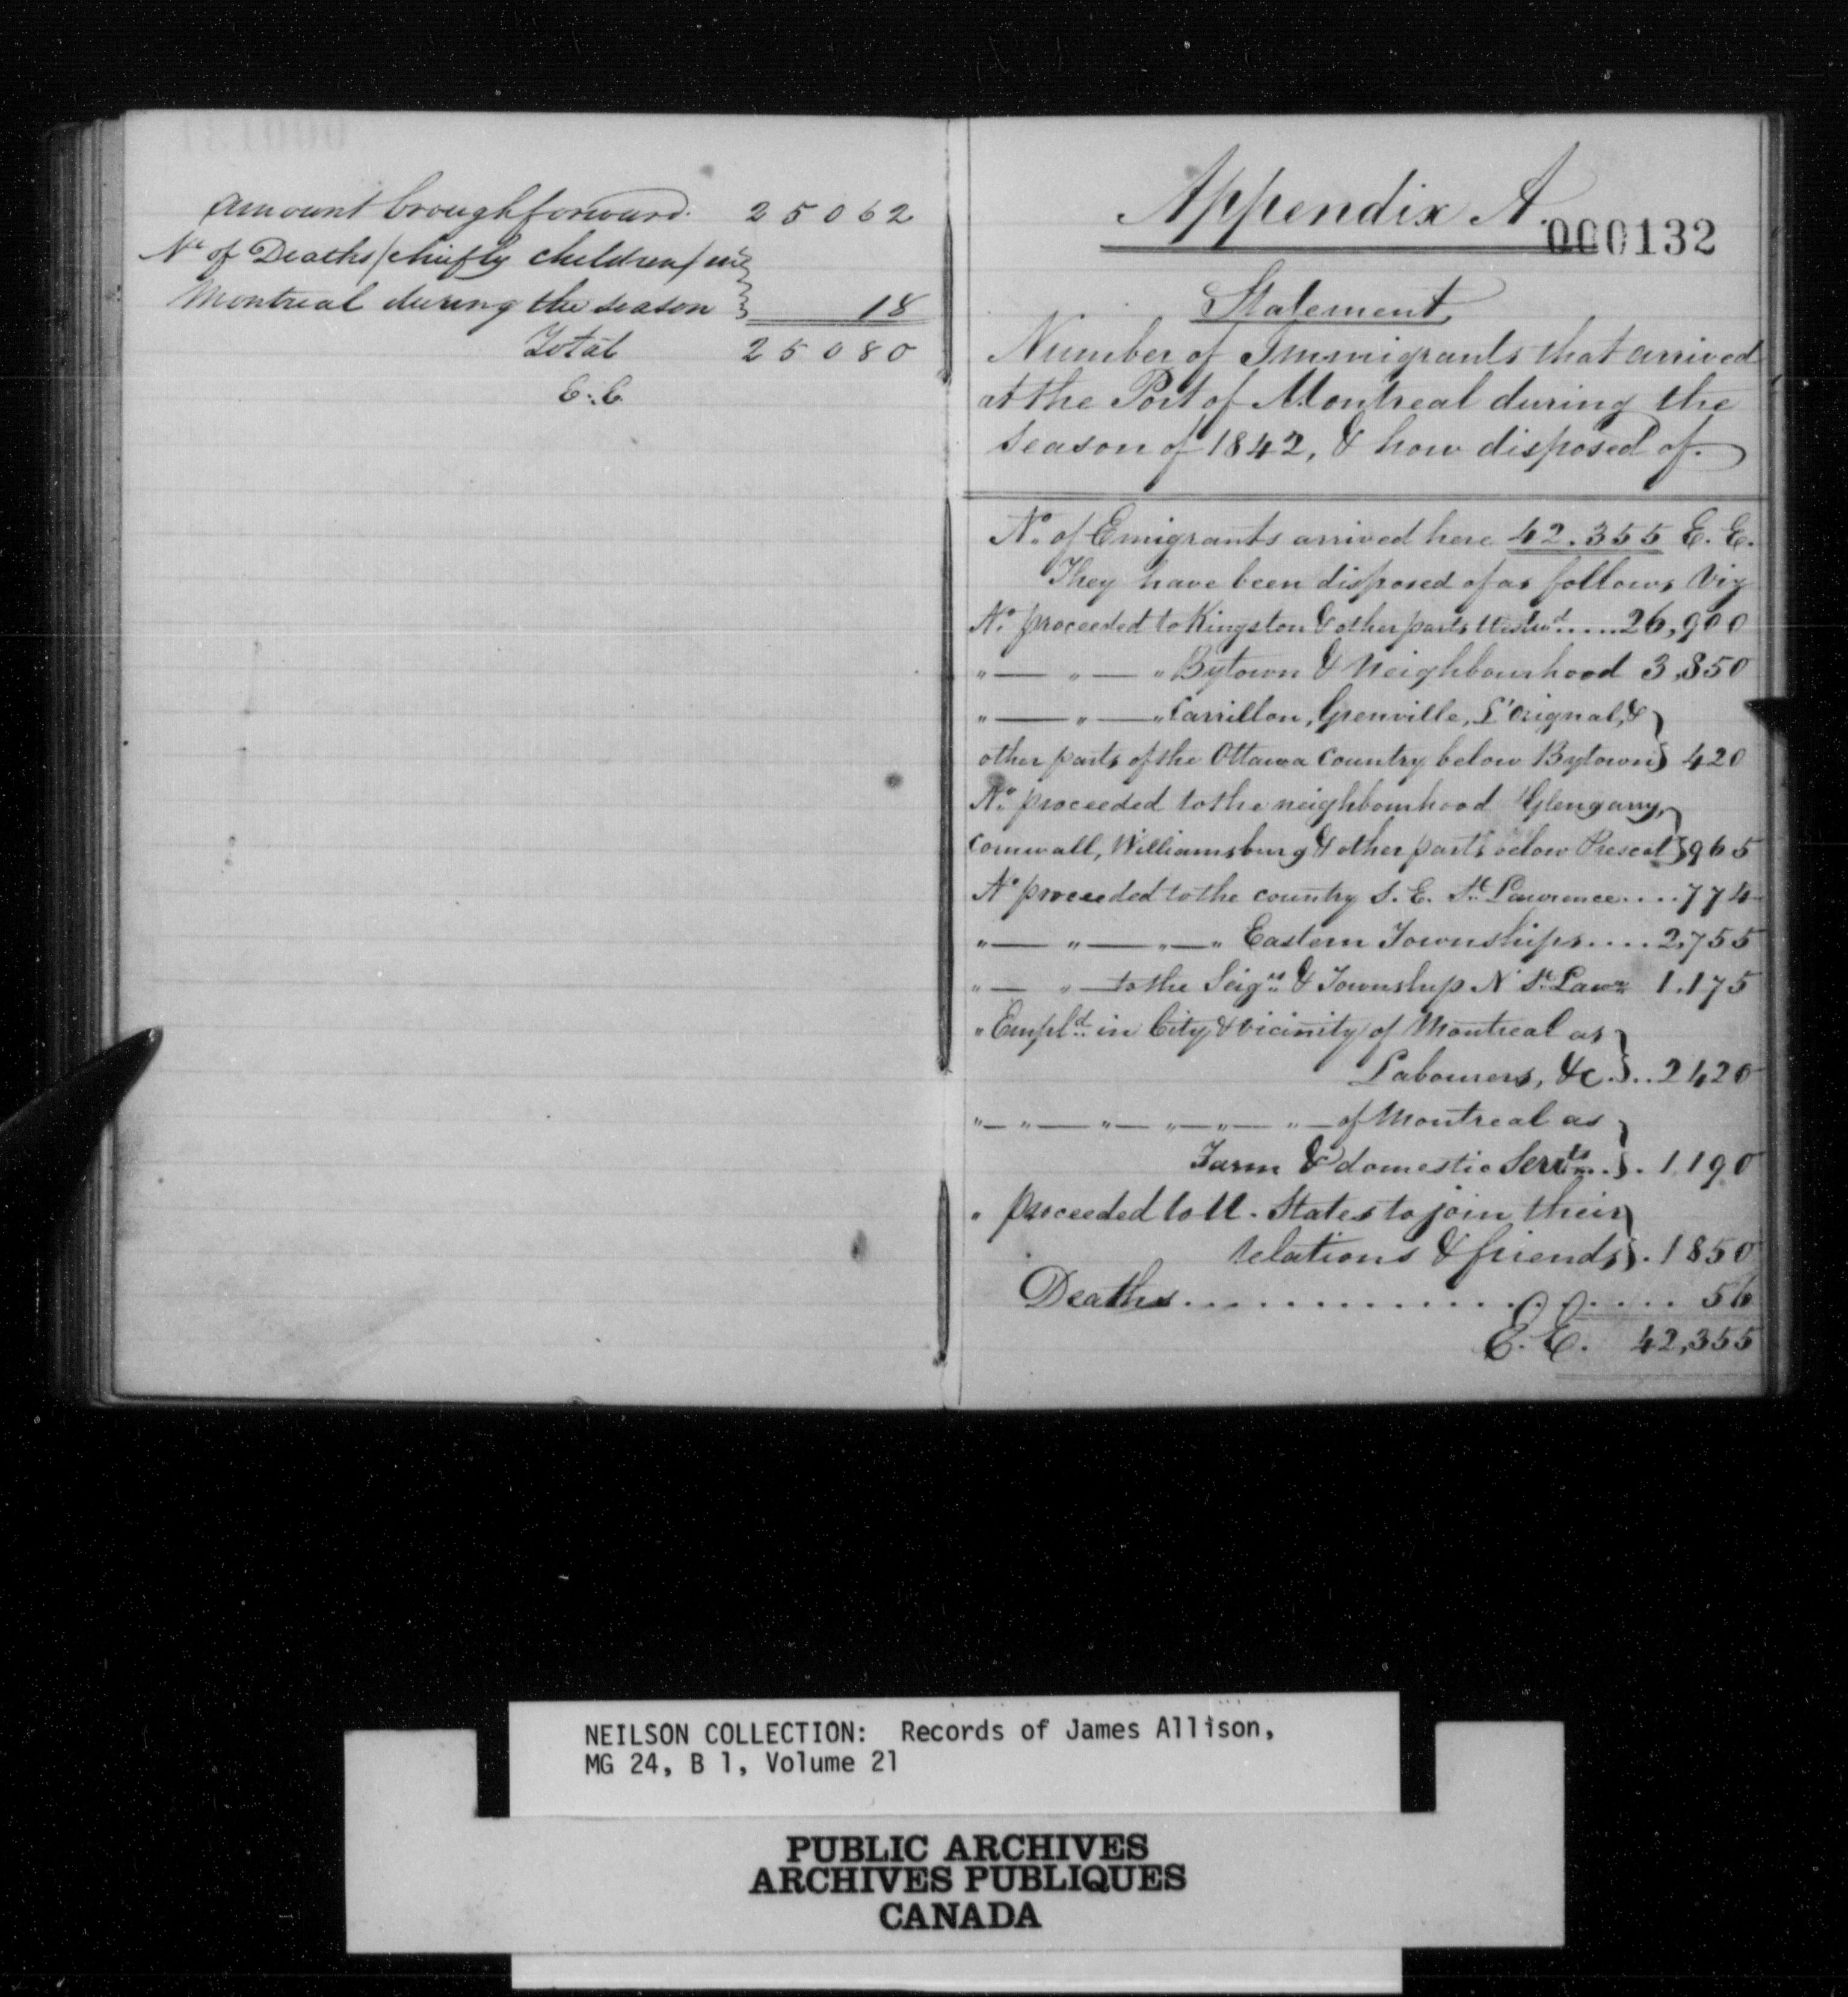 amount brough forward. 25062
No of Deaths (chiefly children) in
Montreal during the season } 18
Total 25080
E.E.
Appendix A
000132
Statement
Number of Immigrants that arrived
at the Port of Montreal during the
season of 1842, & how disposed of.
No. of Emigrants arrived here 42.355 E. E.
They have been disposed of as follows Viz
No. proceeded to Kingston & other parts Westwd..... 26,900
" — " — " Bytown & Neighbourhood 3,850
" — " — " Carrillon, Grenville, L'Orignal, & }
other parts of the Ottawa Country below Bytown } 420
No. proceeded to the neighbourhood Glengarry, }
Cornwall, Williamsburg & other parts below Prescot } 965
No proceeded to the country S. E. St. Lawrence.... 774
" — " — " — " Eastern Townships.... 2,755
" — " — to the Seigs. & Township N St. Lawe 1.175
" Empld. in City & vicinity of Montreal as }
Labourers, &c. }.. 2420
" — " — " — " — " — " — of Montreal as }
Farm & domestic Servts.. }. 1190
" proceeded to U. States to join their }
relations & friends }. 1850
Deaths.................... 56
E. E. 42,355
NEILSON COLLECTION: Records of James Allison,
MG 24, B 1, Volume 21
PUBLIC ARCHIVES
ARCHIVES PUBLIQUES
CANADA